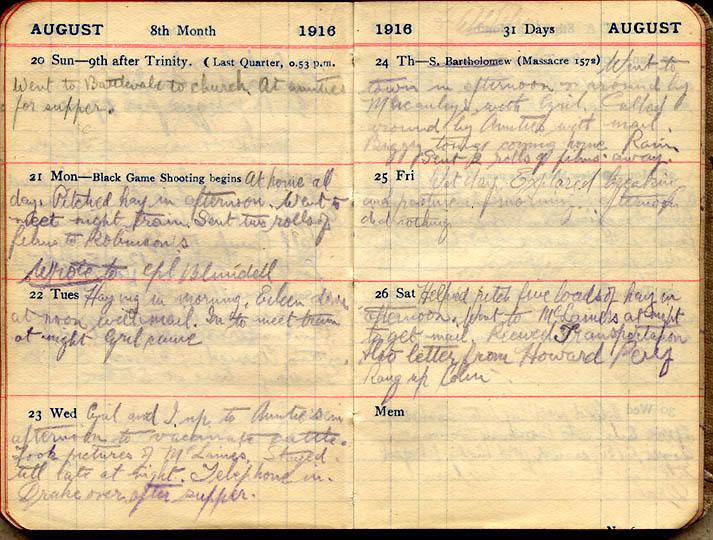 AUGUST 8th Month 1916
20 Sun—9th after Trinity. (Last Quarter, 0.53 p.m.
Went to Battlevale to church. At aunties
for supper.
21 Mon—Black Game Shooting begins At home all
day. Pitched hay in afternoon. Went to
meet night train. Sent two rolls of
films to Robinson's
Wrote to Cpl Blundell
22 Tues Haying in morning. Eileen down
at noon with mail. In to meet train
at night Cyril came
23 Wed Cyril and I up to Auntie's in
afternoon to vaccinate cattle.
Took pictures of McLames. Stayed
till late at night. Telephone in.
Drake over after supper.
1916 31 Days AUGUST
24 Th—S. Bartholomew (Massacre 1572) Went to
town in afternoon & around by
with Cyril. Called
around by Aunties with mail.
coming home Rain
Sent 2 rolls of films away.
25 Fri Wet day. Explored
and pasture morning. Afternoon
did nothing
26 Sat Helped pitch five loads of hay in
afternoon. Went to at night
to get mail. Transportation
Also letter from Howard
Rang up
Mem